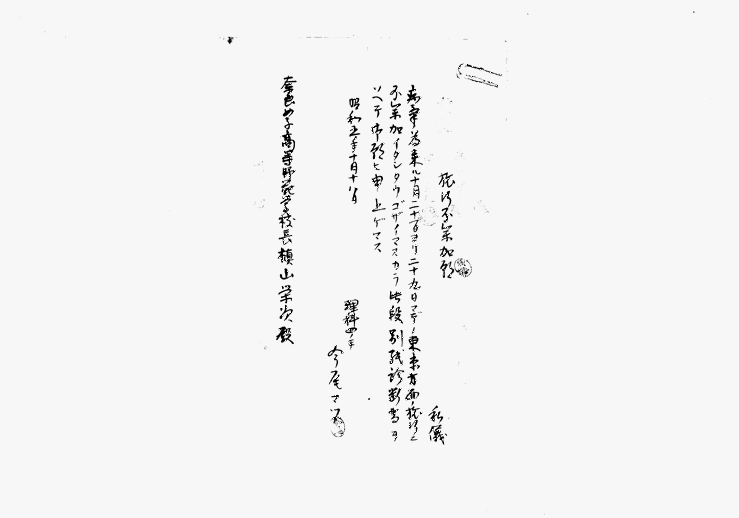 旅行不参加願
私儀
病気ノ為来ル十月二十一日ヨリ二十九日マデノ東京方面ノ旅行ニ
不参加イタシタウゴザイマスカラ此段別紙診断書ヲ
ソヘテ御願ヒ申上ゲマス
昭和五年十月十八日
理科四年
今尾
奈良女子高等師範学校長槇山栄次殿